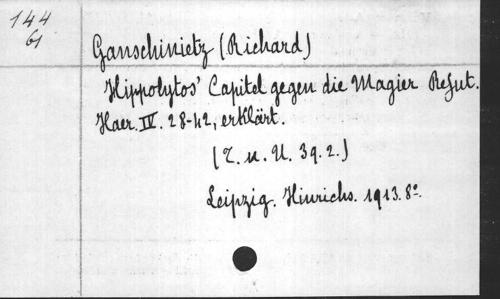 144
61
Ganschinietz (Richard)
Hippolytos' Capitel gegen die Magier Refut.
Haer. IV. 28-42, erklärt.
(T. u. U. 39. 2.)
Leipzig. Hinrichs. 1913. 8°.